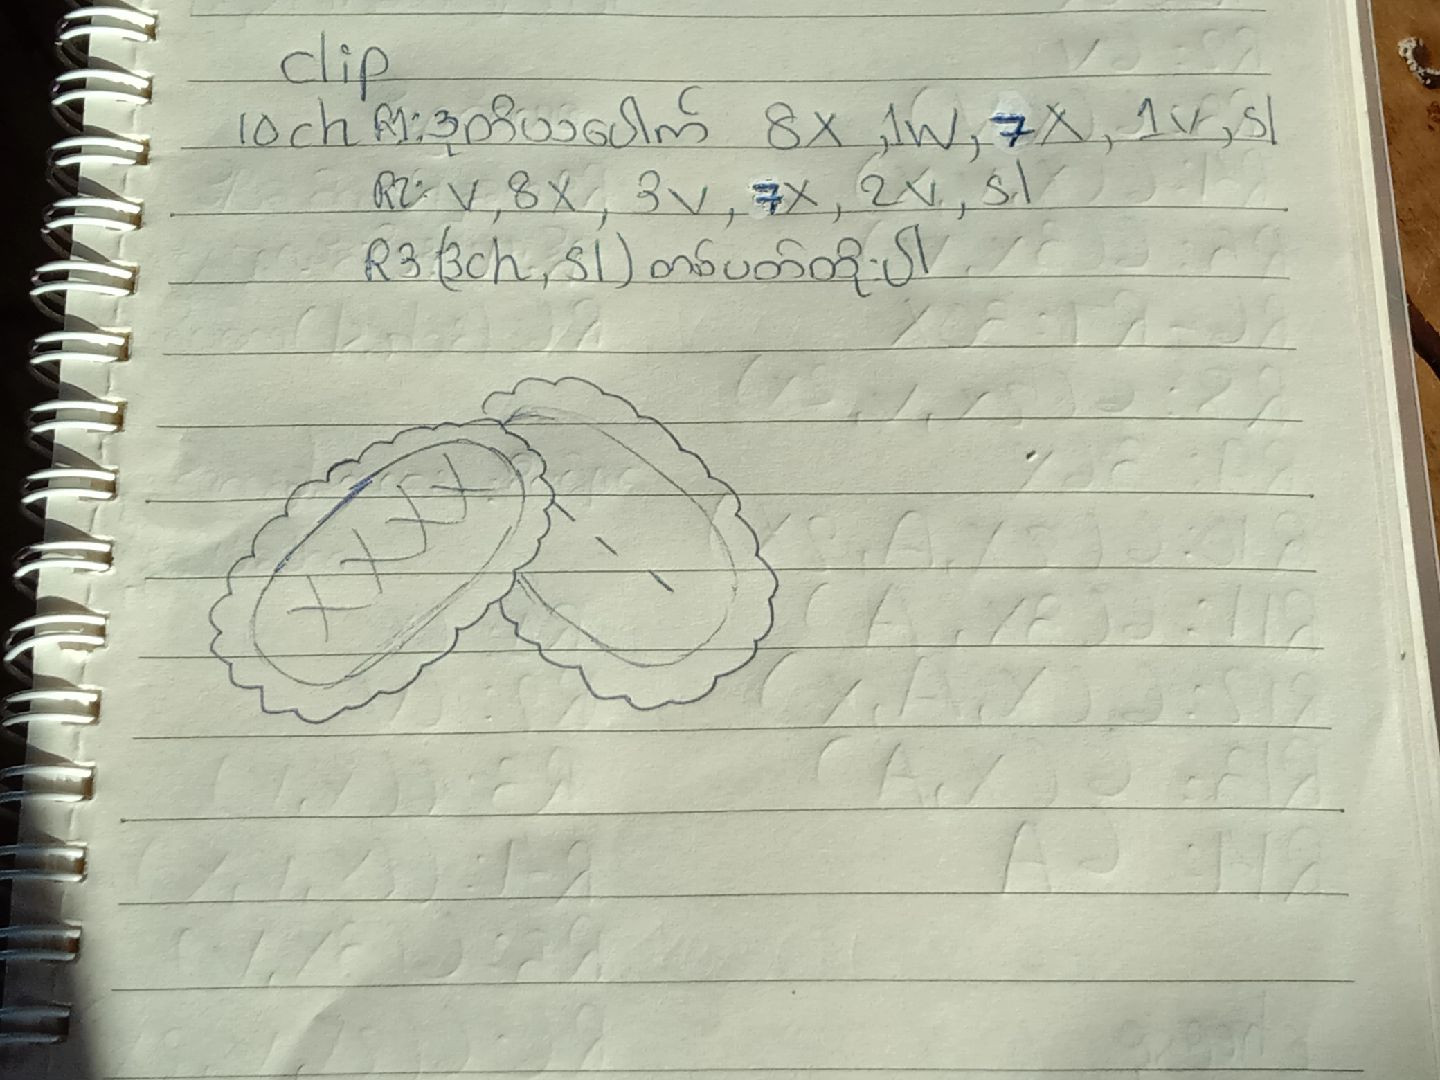 clip
10ch R1: ဒုတိယပေါက် 8X, 1W, 7X, 1V, sl
R2: V, 8X, 3V, 7X, 2V, sl
R3 (3ch, sl) တစ်ပတ်ထိုးပါ